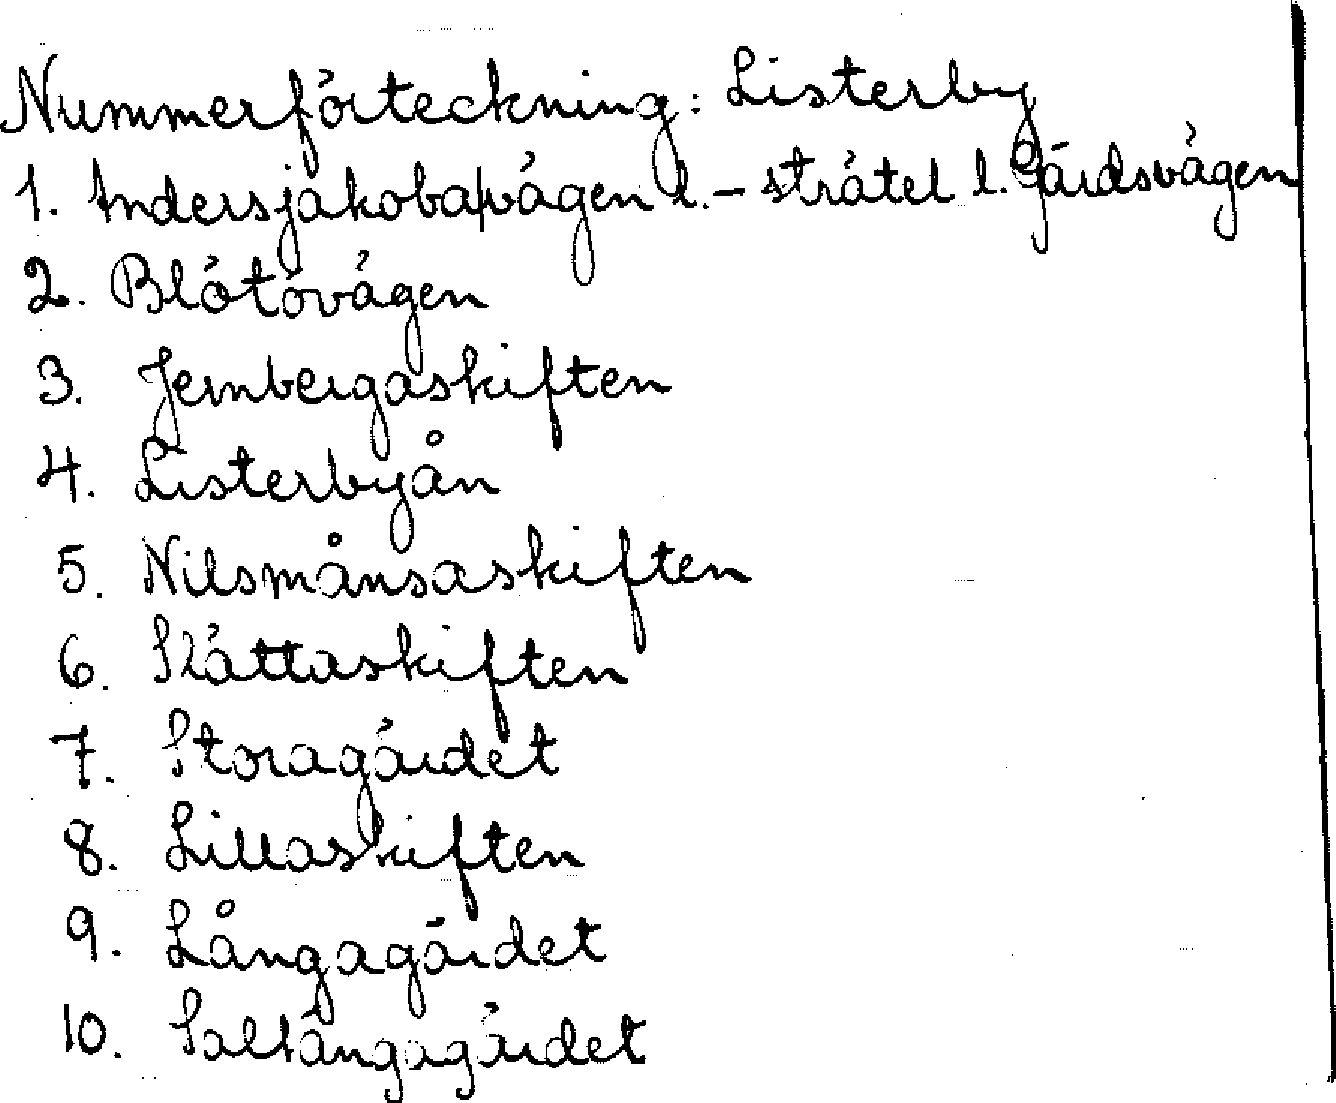 Nummerförteckning: Listerby
1. Andersjakobavägen l. - strätet l. Gärdsvägen
2. Blötövägen
3. Jernbergaskiften
4. Listerbyån
5. Nilsmånsaskiften
6. Slättaskiften
7. Storagärdet
8. Lillaskiften
9. Långagärdet
10. Saltängagärdet